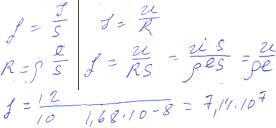 j = J/S
j = u/R
R = ρ e/S
j = u/RS = u S/ρeS = u/ρe
j = 12/10 1,68·10-8 = 7,14.10⁷